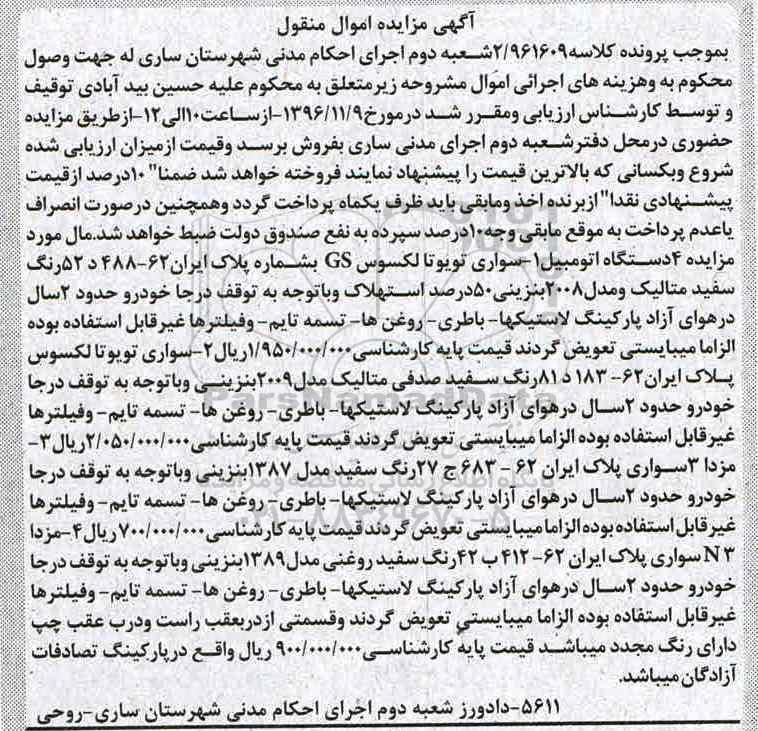 آگهی مزایده اموال منقول
بموجب پرونده کلاسه۲/۹۶۱۶۰۹شعبه دوم اجرای احکام مدنی شهرستان ساری له جهت وصول
محکوم به وهزینه های اجرائی اموال مشروحه زیرمتعلق به محکوم علیه حسین بید آبادی توقیف
و توسط کارشناس ارزیابی ومقرر شد درمورخ۱۳۹۶/۱۱/۹-ازساعت۱۰الی۱۲-ازطریق مزایده
حضوری درمحل دفترشعبه دوم اجرای مدنی ساری بفروش برسد وقیمت ازمیزان ارزیابی شده
شروع وبکسانی که بالاترین قیمت را پیشنهاد نمایند فروخته خواهد شد ضمنا" ۱۰درصد ازقیمت
پیشنهادی نقدا" ازبرنده اخذ ومابقی باید ظرف یکماه پرداخت گردد وهمچنین درصورت انصراف
یاعدم پرداخت به موقع مابقی وجه۱۰درصد سپرده به نفع صندوق دولت ضبط خواهد شد.مال مورد
مزایده ۴دستگاه اتومبیل۱-سواری تویوتا لکسوس GS بشماره پلاک ایران۶۲-۴۸۸ د ۵۲رنگ
سفید متالیک ومدل۲۰۰۸بنزینی۵۰درصد استهلاک وباتوجه به توقف درجا خودرو حدود ۲سال
درهوای آزاد پارکینگ لاستیکها- باطری- روغن ها- تسمه تایم- وفیلترها غیرقابل استفاده بوده
الزاما میبایستی تعویض گردند قیمت پایه کارشناسی۱/۹۵۰/۰۰۰/۰۰۰ریال۲-سواری تویوتا لکسوس
پلاک ایران۶۲- ۱۸۳ د ۸۱رنگ سفید صدفی متالیک مدل۲۰۰۹بنزینی وباتوجه به توقف درجا
خودرو حدود ۲سال درهوای آزاد پارکینگ لاستیکها- باطری- روغن ها- تسمه تایم- وفیلترها
غیرقابل استفاده بوده الزاما میبایستی تعویض گردند قیمت پایه کارشناسی۲/۰۵۰/۰۰۰/۰۰۰ریال۳-
مزدا ۳سواری پلاک ایران ۶۲ - ۶۸۳ ج ۲۷رنگ سفید مدل ۱۳۸۷بنزینی وباتوجه به توقف درجا
خودرو حدود ۲سال درهوای آزاد پارکینگ لاستیکها- باطری- روغن ها- تسمه تایم- وفیلترها
غیرقابل استفاده بوده الزاما میبایستی تعویض گردند قیمت پایه کارشناسی۷۰۰/۰۰۰/۰۰۰ ریال۴-مزدا
N۳ سواری پلاک ایران ۶۲-۴۱۲ ب ۴۲رنگ سفید روغنی مدل۱۳۸۹بنزینی وباتوجه به توقف درجا
خودرو حدود ۲سال درهوای آزاد پارکینگ لاستیکها- باطری- روغن ها- تسمه تایم- وفیلترها
غیرقابل استفاده بوده الزاما میبایستی تعویض گردند وقسمتی ازدربعقب راست ودرب عقب چپ
دارای رنگ مجدد میباشد قیمت پایه کارشناسی۹۰۰/۰۰۰/۰۰۰ ریال واقع درپارکینگ تصادفات
آزادگان میباشد.
۵۶۱۱-دادورز شعبه دوم اجرای احکام مدنی شهرستان ساری-روحی
ParsNamadData